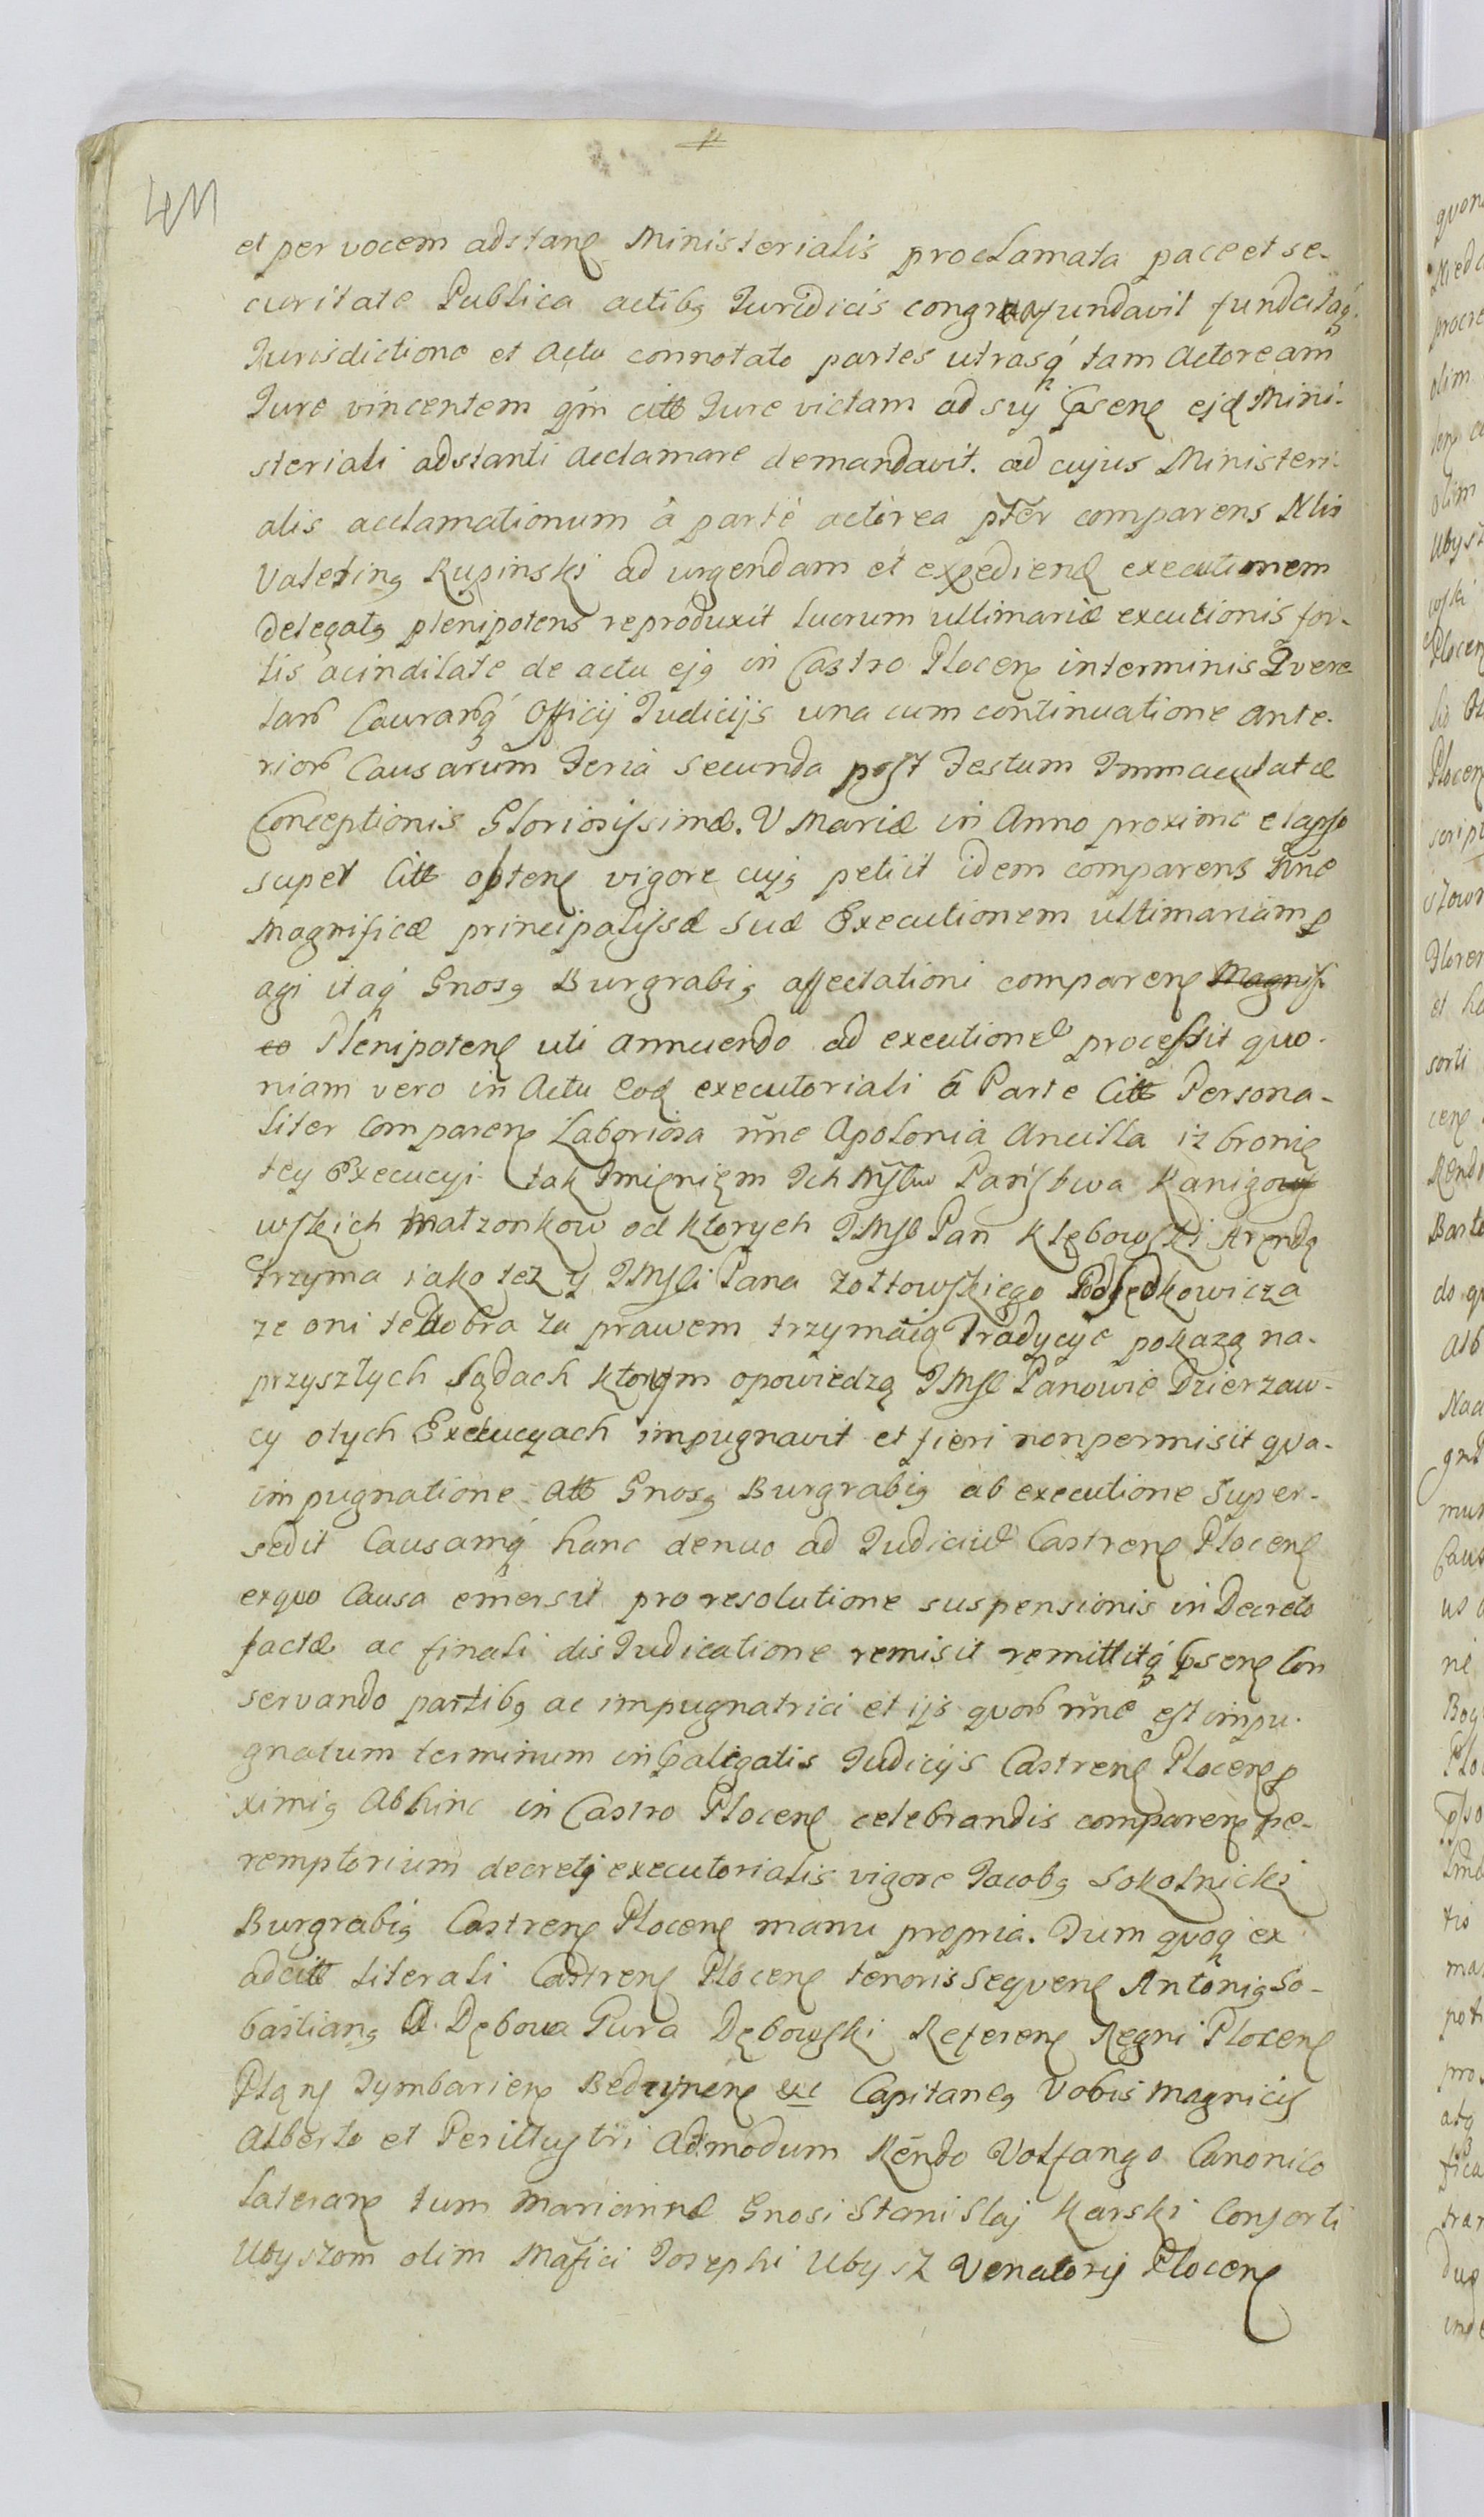 411
et per vocem adstanę Ministerialis proclamata pace et se-
curitate Publica actibg Juridicis congrua fundavit fundataq́
Jurisdictione et Actu connotato partes utrasq́ tam Actoream
Jure vincentem qm̃ citt Jure victam ad sui Psenę ejd Mini-
steriali adstanti acclamare demandavit. ad cujus Ministeri-
alis acclamationum á parte actorea pter comparens Nlis
Valering Rupinski ad urgendam et expediend executionem
Delegatg plenipotens reproduxit lucrum ultimariæ executionis for-
tis acinditate de actu ejg in Castro Plocenę interminis Quere
larb Caurarbq́ Officij Judicijs una cum continuatione ante-
riorb Causarum Feria Secunda post Festum Immaculatæ
Conceptionis Gloriosissimæ V Mariæ in Anno proxime elapso
super Citt obtenę vigore cujg petiit idem comparens Nñe
Magnificæ principalissæ Suæ Executionem ultimariam p
agi itaq́ Gnosg Burgrabig affectationi comparenę Magnif-
co Plenipotenę uti annuendo ad executione processit quo-
niam vero in Actu eod executoriali á Parte Citt Persona-
liter Comparenę Laboriosa nñe Apolonia Ancilla iz bronię
tey Execucyi tak Imięnięm Ich Mśw Państwa Kanigow
wskich Małzonkow od ktorych JMśc Pan Klębowski Arendę
trzyma iako tez y JMśći Pana Zołtowskięgo Podsędkowicza
ze oni te dobra za prawem trzymáią Tradycyę pokazą na-
przyszłych Sądach ktorym opowiedzą JMść Panowie Dzierzaw-
cy otych Execucyach impugnavit et fieri non permisit qva-
impugnatione Att Gnosg Burgrabig ab executione Super-
sedit Causamq́ hanc denuo ad Judiciu Castrenę Plocenę
exquo Causa emersit pro resolutione suspensionis in Decreto
factæ ac finali dis Judicatione remisit remittitq́ Psenę Con
servando partibg ac impugnatrici et ijs quorb nñe est impu-
gnatum terminum in Paligatis Judicijs Castrenę Plocenę p
ximig Abhinc in Castro Plocenę celebrandis comparenę pe-
remptorium decreti executorialis vigore Jacobg Sokolnicki
Burgrabig Castrenę Plocenę manu propria. Tum quoq́ ex
adcitt literali Castrenę Plocenę tenoris Seqvenę Antonig Se-
bastiang A Dębowa Gura Dębowski Referenę Regni Plocenę
Plonę Tymbarienę Bedzynenę etc Capitaneg Vobis Magnicis
Alberto et Perillustri Admodum Rendo Volfango Canonico
Lateranę tum Mariannæ Gnosi Stanislaj Karski Consorti
Ubyszom olim Mafici Josephi Ubysz Venatoris Plocenę